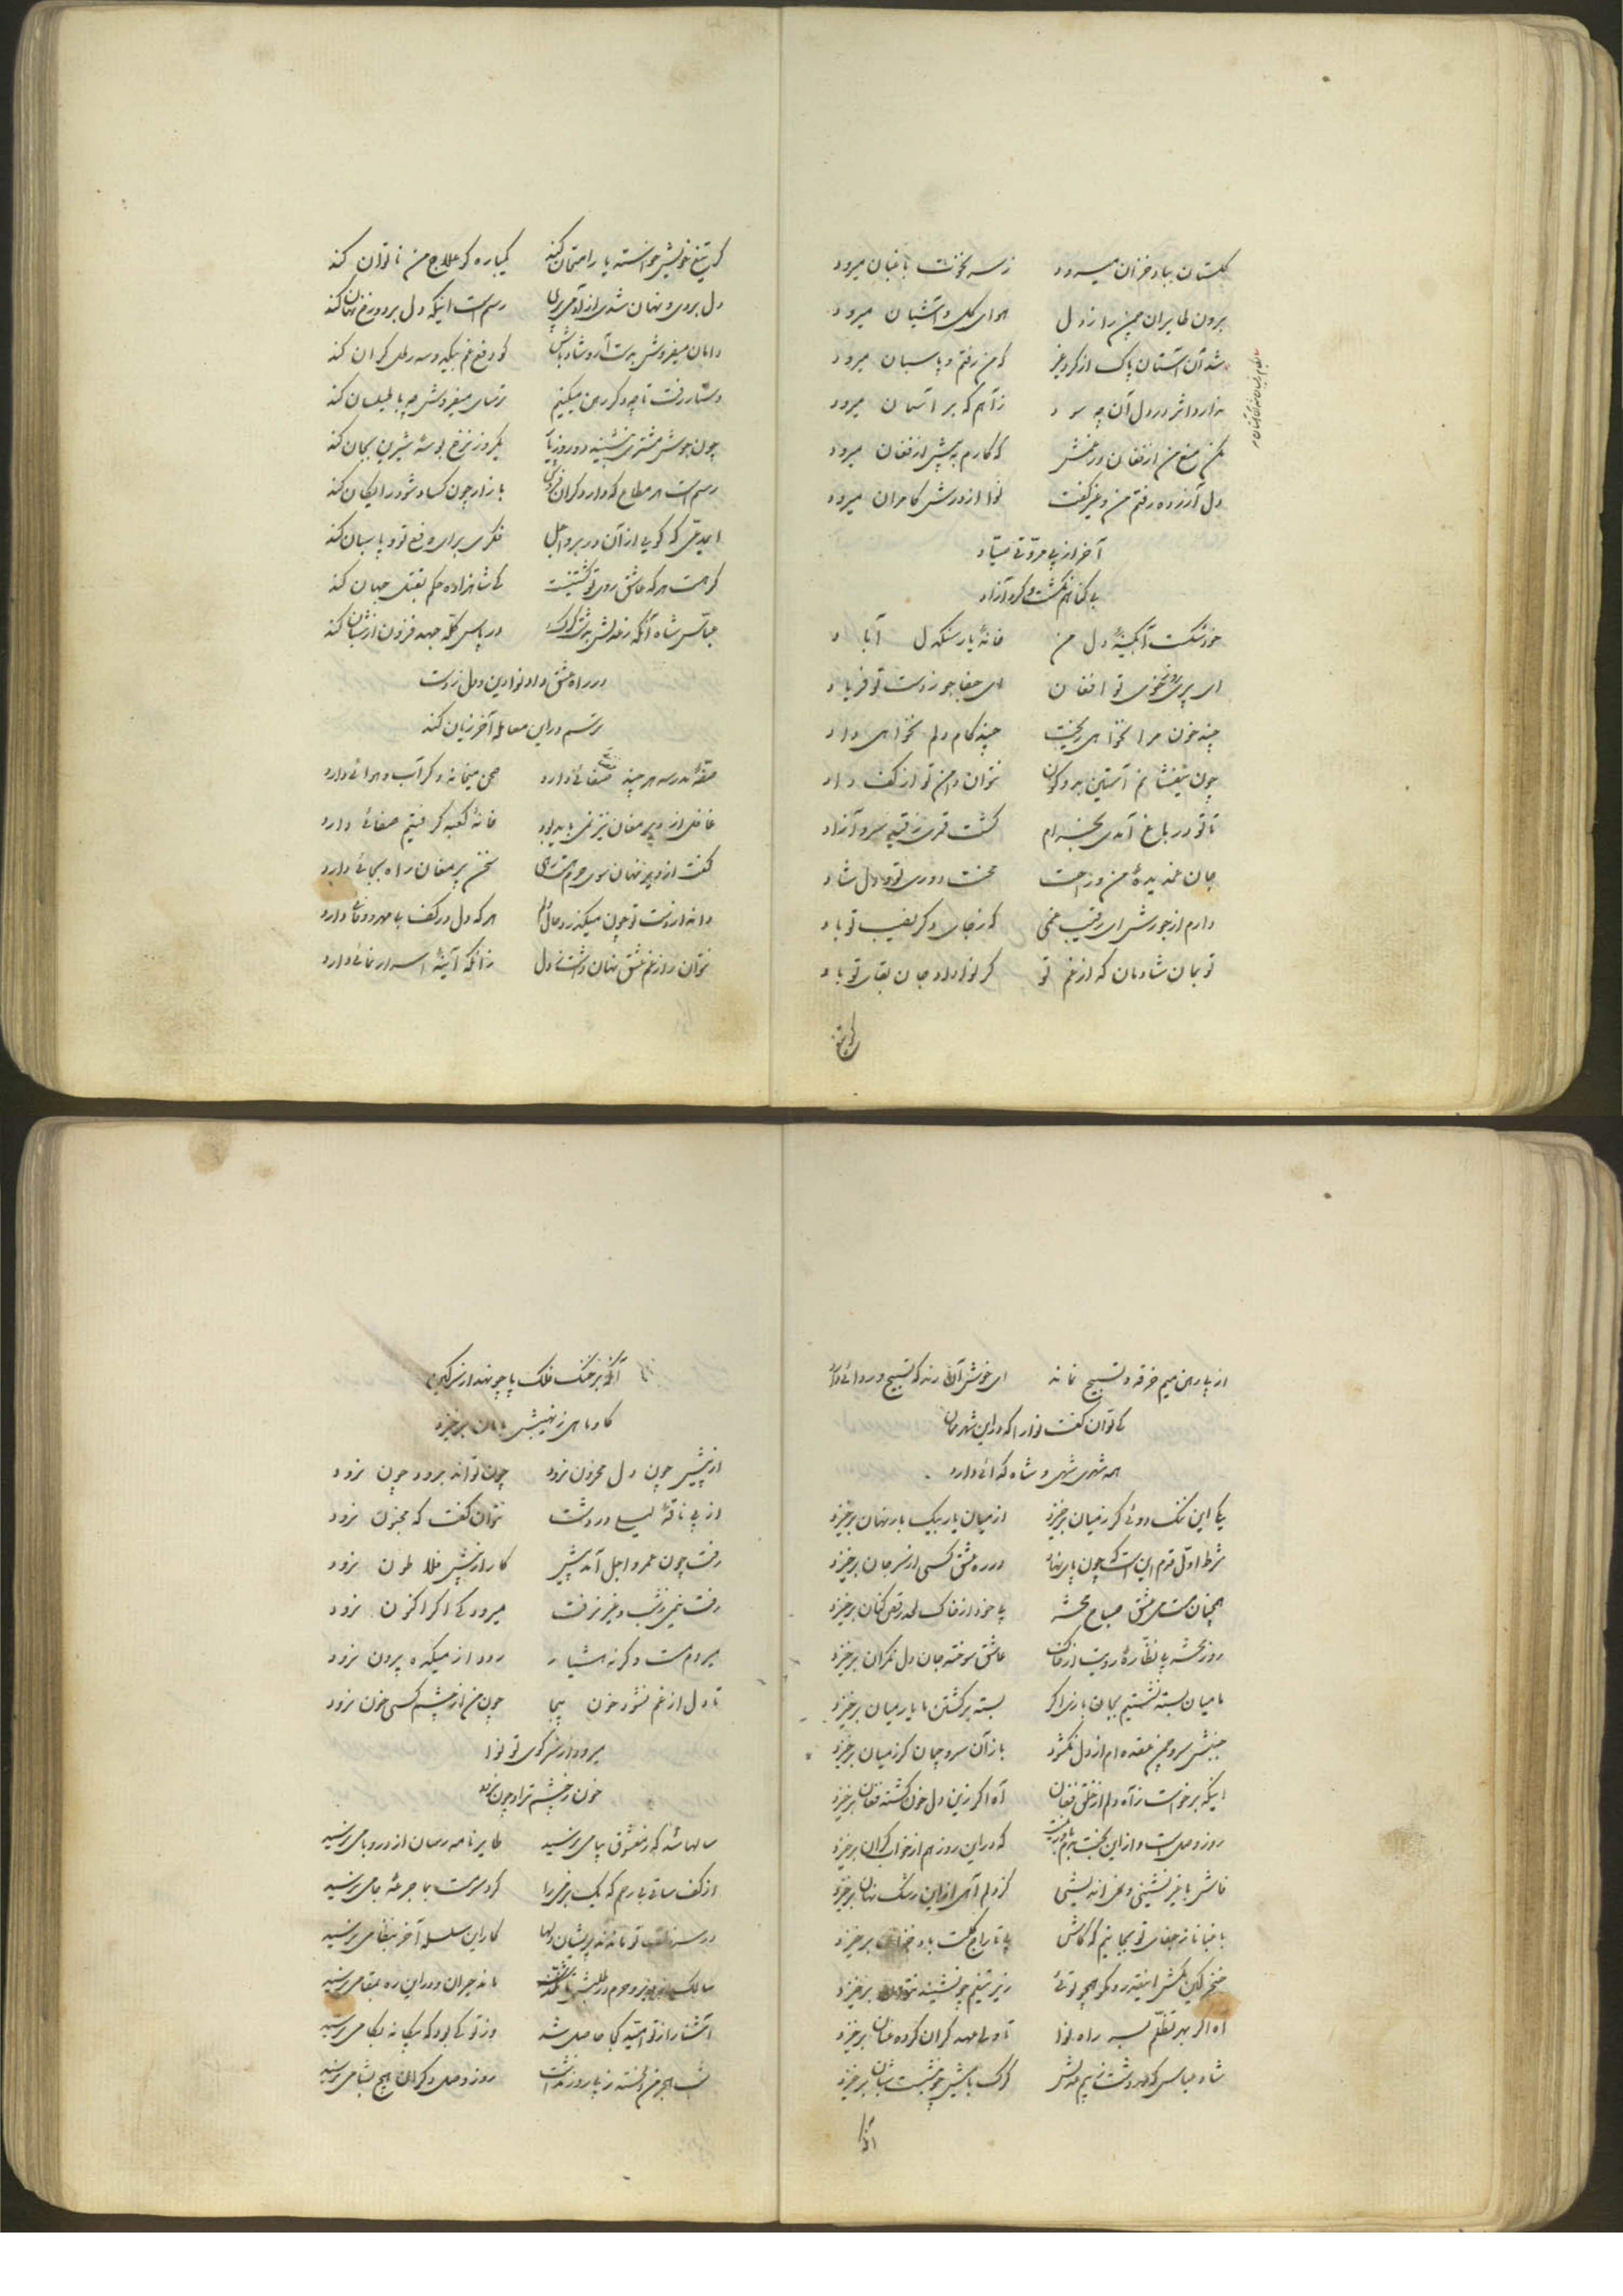 گلستان بباد خزان میرود ز سر نخوت باغبان میرود
برون طایران چمن را ز دل هوای گل و آشیان میرود
شد آن آستان پاک از گرد غیر که من رفتم و پاسبان میرود
ندارد اثر در دل آن چه سود ز آهم که بر آسمان میرود
مکن منع من از فغان در غمش که کارم به پیش از فغان میرود
دل آزرده رفتم من و غیر گفت نوا از درش کامران میرود
آخر از بی مروتی صیاد
بی گناهم بکشت و کرد آزاد
خود شکست آبگینهٔ دل من خانهٔ یار سنگدل آباد
ای پریروی ز خوی تو افغان ای جفا جو ز دست تو فریاد
چند خون مرا نخواهی ریخت چند کام دلم نخواهی داد
چون نیفشانم آستین بدو کون نتوان دامن تو از کف داد
تا تو در باغ آمدی بخرام گشت قمری ز قید سرو آزاد
جان غمدیدهٔ من و زحمت محنت دوری تو و دل شاد
دارم از جورش ای رقیب غمی که ز جای دگر نصیب تو باد
تو بمان شادمان که از غم تو گر نوا داد جان بقای تو باد
گر تیغ
گر تیغ خویش خواسته یار امتحان کند یکباره کو علاج من ناتوان کند
دل بردی و نهان شدی از آدمی پری رسم است اینکه دل برد و رخ نهان کند
دامان میفروش بدست آر و شاد باش کو دفع غم بیک دو سه رطل گران کند
دستار رفت تا چه دگر رهن میکنیم ترسای میفروش چه با طیلسان کند
چون جوش مشتری ننشیند دو روز یار یکروز نرخ بوسهٔ شیرین بجان کند
رسم است هر متاع که دارد گران فروش بازار چون کساد شود رایگان کند
ای مدعی که گویی از آن در برو اجل فکری برای دفع تو و پاسبان کند
گر هست هر که عاشق روی تو کشتنیست کی شاهزاده حکم بقتل جهان کند
عباس شاه آنکه ز عدلش بدشت گرگ در پاس گله جهد فزون از شبان کند
در راه عشق داد نوا دین و دل ز دست
ترسم در این معامله آخر زیان کند
صفهٔ مدرسه هر چند صفائی دارد صحن میخانه دگر آب و هوائی دارد
غافل از دیر مغان نیز نمی باید بود خانهٔ کعبه گرفتیم صفائی دارد
گفت از دیر نهان سوی حرم هست رهی سخن پیر مغان راه بجائی دارد
داند از دست تو چون میگذرد حال دلم هر که دل در کف بی مهر و وفائی دارد
نتوان راز غم عشق نهان داشت ز دل زانکه آئینهٔ اسرار نمائی دارد
از پی رهن میم خرقه و تسبیح نماند ای خوش آن رند که تسبیح و ردائی دارد
کی توان گفت نوا را که در این شهر بمان
همه شهری شهی و شاه گدائی دارد
یکی این ننگ دوئی گر ز میان برخیزد از میان یار بیک بار نهان برخیزد
شرط اول قدم این است که چون پای نهد در ره عشق کسی از سر جان برخیزد
همچنان مست می عشق صباح محشر پا خود از خاک لحد رقص کنان برخیزد
روز محشر پی نظارهٔ رویت از خاک عاشق سوخته جان دل نگران برخیزد
ما میان بسته نشستیم بجان بازی اگر بسته بر کشتن ما یار میان برخیزد
جنبش سرو چمن عقده ام از دل نگشود باز آن سرو چمان گر ز میان برخیزد
اینکه برخواست ز آه دلم از خلق فغان آه اگر زین دل خون گشته فغان برخیزد
روز وصل است و از این بخت بدم باور نیست که در این روز هم از خواب گران برخیزد
فاش با غیر نشینی و نمی اندیشی کز دلم آهی از این رشک نهان برخیزد
باغبانا ز جفای تو بجانیم که کاش پی تاراج گلت باد خزان برخیزد
خنجر کین مکش اینقدر و مگو همچو توئی زیر تیغم چو نشیند نتوان برخیزد
آه اگر بهر تظلم بسر راه نوا تا ولی عهد گران کرده عنان برخیزد
شاه عباس که در دشت ز بیم عدلش گرگ با میش چو بنشست شبان برخیزد
آنکه
آنکه بر خنگ فلک پا چو نهد از سر کین
گاو ماهی ز نهیبش بامان برخیزد
از پیش چون دل محزون نرود چون تواند برود چون نرود
از پی ناقهٔ لیلی در دشت نتوان گفت که مجنون نرود
رفت چون عمر و اجل آمد پیش کار از پیش فلاطون نرود
رفت نیمی ز شب و غیر نرفت میرود کی اگر اکنون نرود
میرود مست و گرنه هشیار رود از میکده بیرون نرود
تا دل از غم نشود خون بیجا چون من از چشم کسی خون نرود
میرود از سر کوی تو نوا
خون ز چشم تر او چون نرود
سالها شد که ز معشوق پیامی نرسید طایر نامه رسان از در و بامی نرسید
از کف ساقی بی رحم که یک بر غیر را کرد سرمست بما جرعهٔ جامی نرسید
در سر زلف تو ماندند پریشان دلها کار این سلسله آخر بنظامی نرسید
سالک دیر و حرم در طلبش ماند حیران و در این ره بمقامی نرسید
آشنا را ز تو امید کجا حاصل شد وز تو کی بود که بیگانه بکامی نرسید
شب هجر من دلخسته ز پا روز نداشت روز وصل دگران هیچ بشامی نرسید